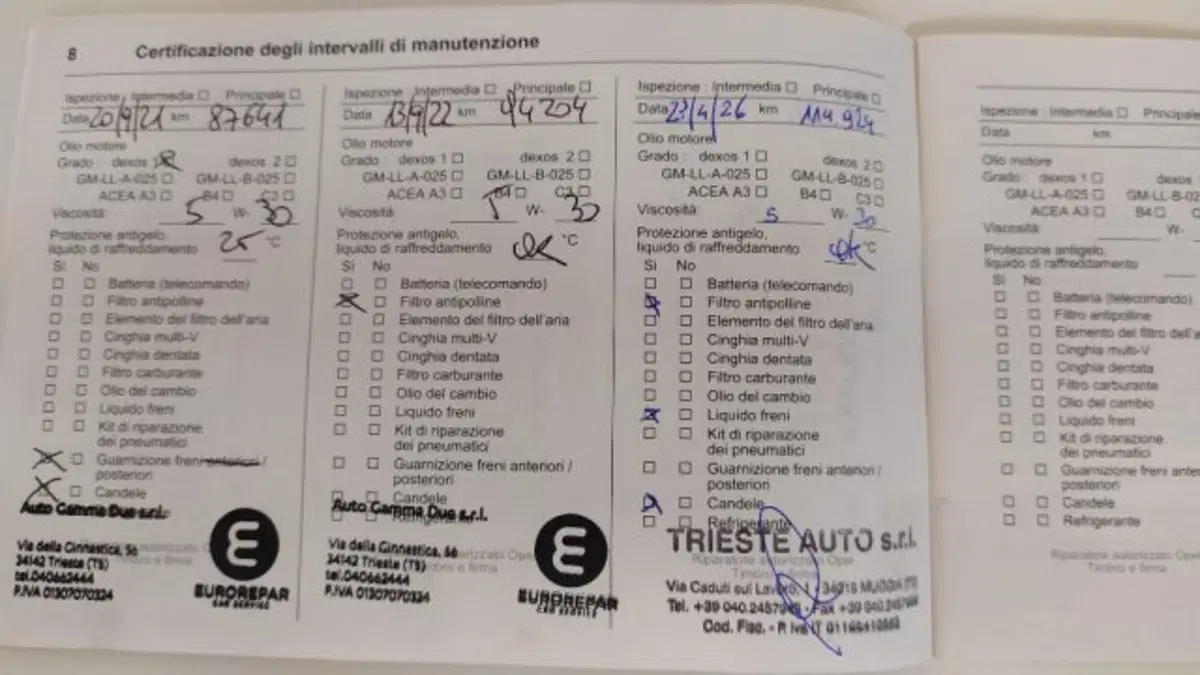 8 Certificazione degli intervalli di manutenzione
Ispezione : Intermedia ☐ Principale ☐
Data 20/9/21 km 87641
Olio motore
Grado : dexos 1 dexos 2 ☐
GM-LL-A-025 ☐ GM-LL-B-025 ☐
ACEA A3 ☐ B4 ☐ C3 ☐
Viscosità 5 W- 30
Protezione antigelo,
liquido di raffreddamento 25 °C
Si No
☐ ☐ Batteria (telecomando)
☐ ☐ Filtro antipolline
☐ ☐ Elemento del filtro dell'aria
☐ ☐ Cinghia multi-V
☐ ☐ Cinghia dentata
☐ ☐ Filtro carburante
☐ ☐ Olio del cambio
☐ ☐ Liquido freni
☐ ☐ Kit di riparazione
dei pneumatici
☒ ☐ Guarnizione freni anteriori /
posteriori
☒ ☐ Candele
Auto Gamma Due s.r.l.
Via della Ginnastica, 56
34142 Trieste (TS)
tel.040662444
P.IVA 01307070324
EUROREPAR
CAR SERVICE
Ispezione : Intermedia ☐ Principale ☐
Data 13/9/22 km 94204
Olio motore
Grado : dexos 1 ☐ dexos 2 ☐
GM-LL-A-025 ☐ GM-LL-B-025 ☐
ACEA A3 ☐ B4 ☐ C3 ☐
Viscosità 5 W- 30
Protezione antigelo,
liquido di raffreddamento ok °C
Si No
☐ ☐ Batteria (telecomando)
☒ ☐ Filtro antipolline
☐ ☐ Elemento del filtro dell'aria
☐ ☐ Cinghia multi-V
☐ ☐ Cinghia dentata
☐ ☐ Filtro carburante
☐ ☐ Olio del cambio
☐ ☐ Liquido freni
☐ ☐ Kit di riparazione
dei pneumatici
☐ ☐ Guarnizione freni anteriori /
posteriori
☐ ☐ Candele
☐ ☐ Refrigerante
Auto Gamma Due s.r.l.
Via della Ginnastica, 56
34142 Trieste (TS)
tel.040662444
P.IVA 01307070324
EUROREPAR
CAR SERVICE
Ispezione : Intermedia ☐ Principale ☐
Data 23/4/26 km 114.924
Olio motore
Grado : dexos 1 ☐ dexos 2 ☐
GM-LL-A-025 ☐ GM-LL-B-025 ☐
ACEA A3 ☐ B4 ☐ C3 ☐
Viscosità 5 W- 30
Protezione antigelo,
liquido di raffreddamento ok °C
Si No
☐ ☐ Batteria (telecomando)
☒ ☐ Filtro antipolline
☐ ☐ Elemento del filtro dell'aria
☐ ☐ Cinghia multi-V
☐ ☐ Cinghia dentata
☐ ☐ Filtro carburante
☐ ☐ Olio del cambio
☒ ☐ Liquido freni
☐ ☐ Kit di riparazione
dei pneumatici
☐ ☐ Guarnizione freni anteriori /
posteriori
☒ ☐ Candele
☐ ☐ Refrigerante
TRIESTE AUTO s.r.l.
Riparatore autorizzato Opel
Timbro e firma
Via Caduti sul Lavoro, 34015 MUGGIA
Tel. +39 040. Fax +39
Cod. Fisc. - P. Iva IT
Ispezione : Intermedia ☐ Principale
Data km
Olio motore
Grado : dexos 1 ☐ dexos
GM-LL-A-025 ☐ GM-LL-B
ACEA A3 ☐ B4 ☐ C
Viscosità W-
Protezione antigelo,
liquido di raffreddamento
Si No
☐ ☐ Batteria (telecomando)
☐ ☐ Filtro antipolline
☐ ☐ Elemento del filtro dell'a
☐ ☐ Cinghia multi-V
☐ ☐ Cinghia dentata
☐ ☐ Filtro carburante
☐ ☐ Olio del cambio
☐ ☐ Liquido freni
☐ ☐ Kit di riparazione
dei pneumatici
☐ ☐ Guarnizione freni ante
posteriori
☐ ☐ Candele
☐ ☐ Refrigerante
Riparatore autorizzato Ope
Timbro e firma